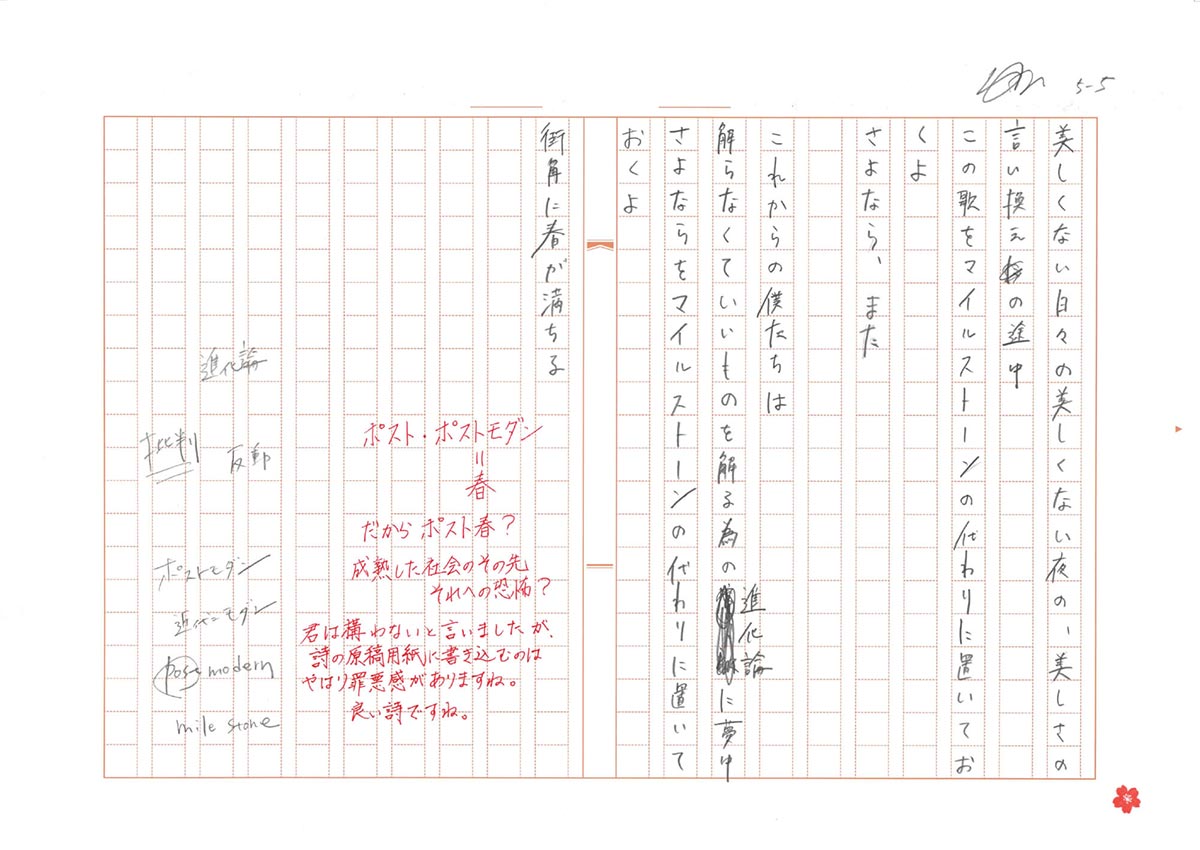 5-5
美しくない日々の美しくない夜の、美しさの
言い換えの途中
この歌をマイルストーンの代わりに置いてお
くよ
さよなら、また
これからの僕たちは
解らなくていいものを解る為の進化論に夢中
さよならをマイルストーンの代わりに置いて
おくよ
街角に春が満ちる
ポスト・ポストモダン
=
春
だからポスト春?
成熟した社会のその先
それへの恐怖?
君は構わないと言いましたが、
詩の原稿用紙に書き込むのは
やはり罪悪感がありますね。
良い詩ですね。
進化論
批判
反動
ポストモダン
近代=モダン
post modern
mile stone